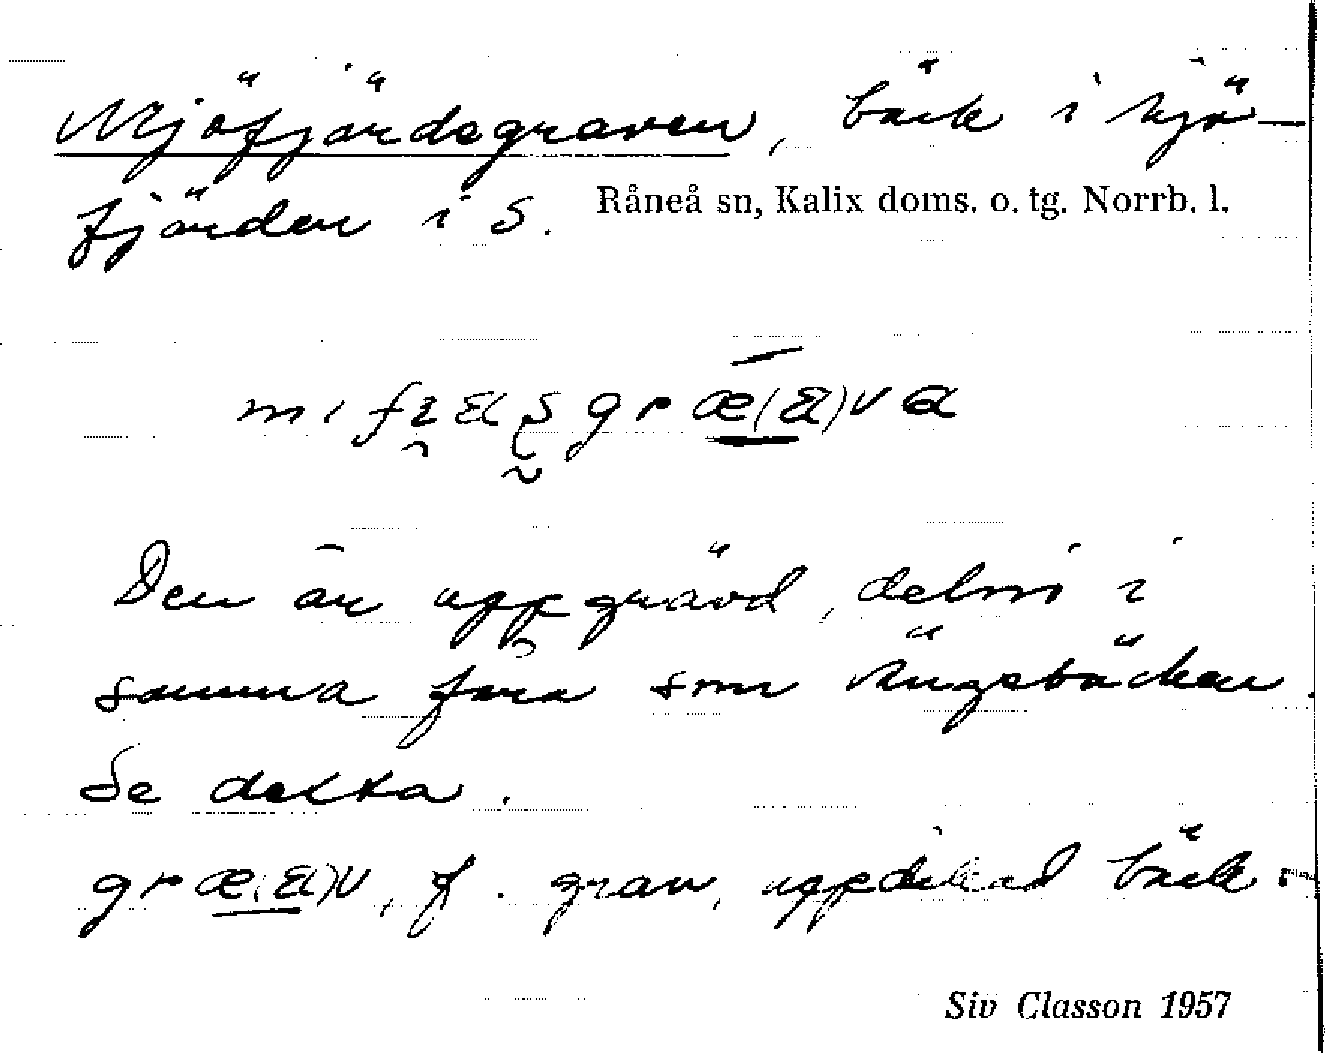 Mjöfjärdsgraven, bäck i Mjö-
fjärden i S. Råneå sn, Kalix doms. o. tg. Norrb. l.
Den är uppgrävd, delvis i
samma fåra som Ängsbäcken.
Se detta.
f. grav, uppdikad bäck
Siv Classon 1957